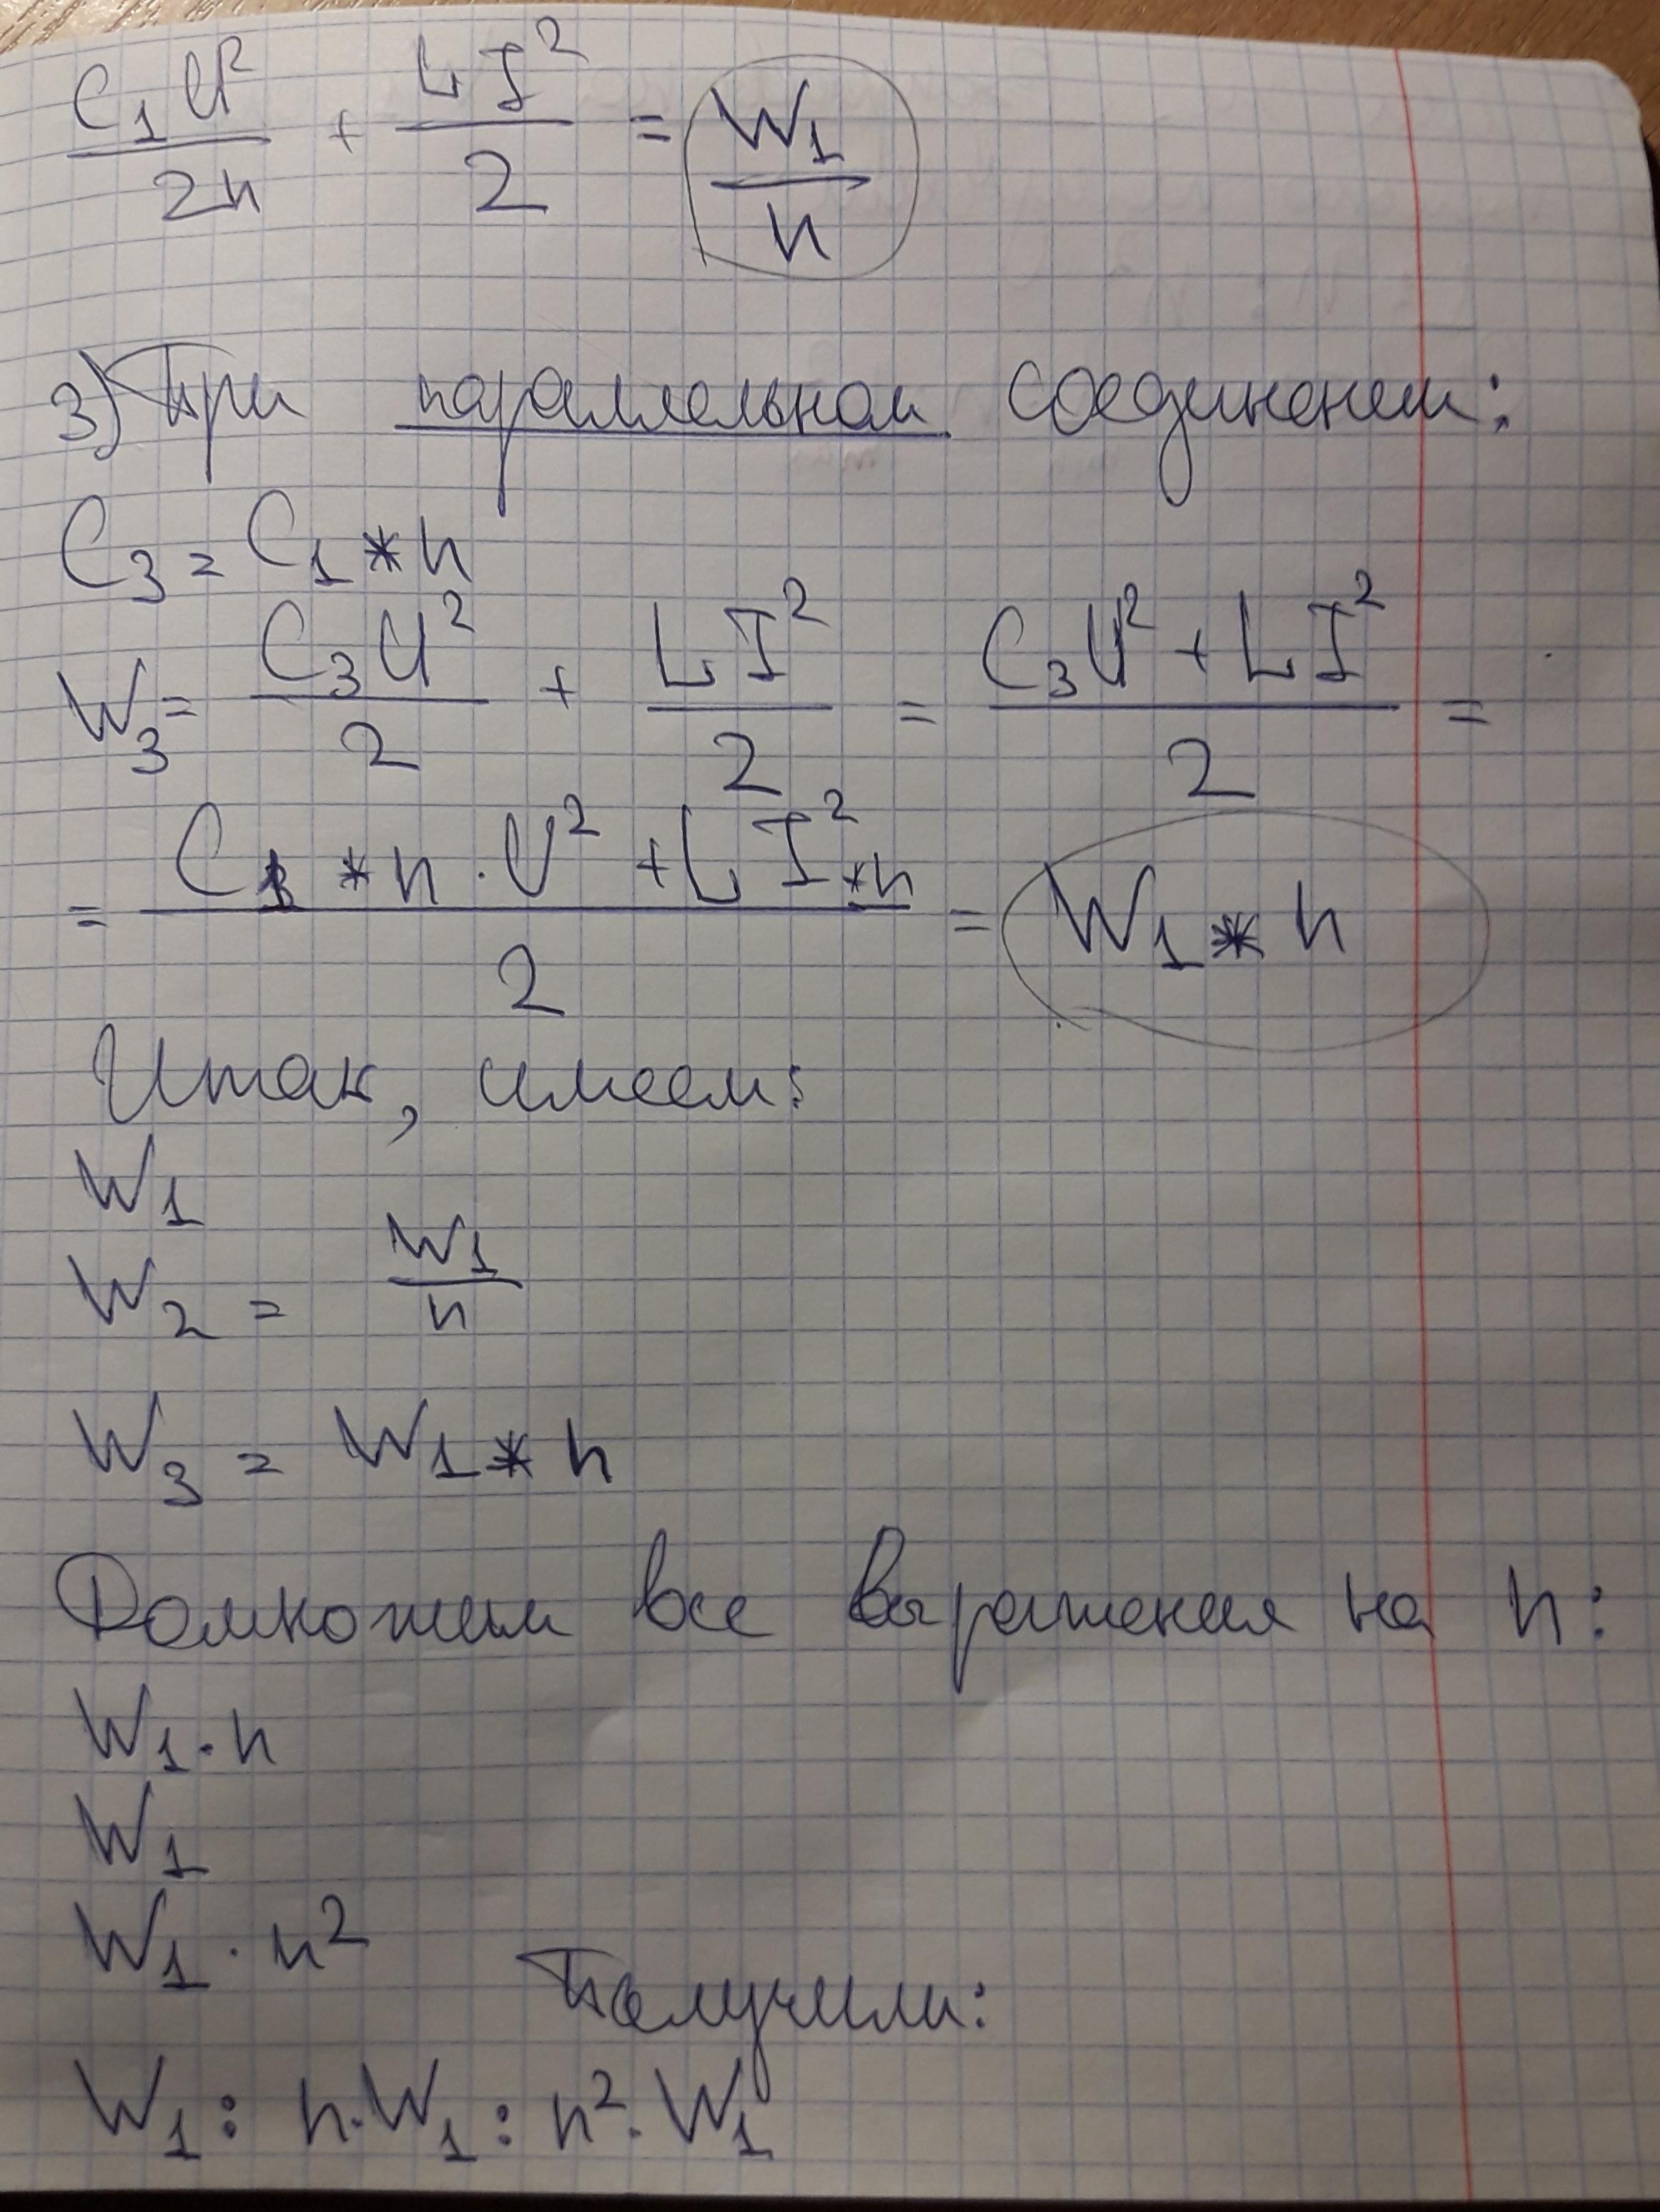 C₁U²/2n + LI²/2 = W₁/n
3) При параллельном соединении:
C₃ = C₁ * n
W₃ = C₃U²/2 + LI²/2 = (C₃U² + LI²)/2 =
= (C₁ * n · U² + LI² * n)/2 = W₁ * n
Итак, имеем:
W₁
W₂ = W₁/n
W₃ = W₁ * n
Домножим все выражения на n:
W₁ · n
W₁
W₁ · n²
Получили:
W₁ : n · W₁ : n² · W₁